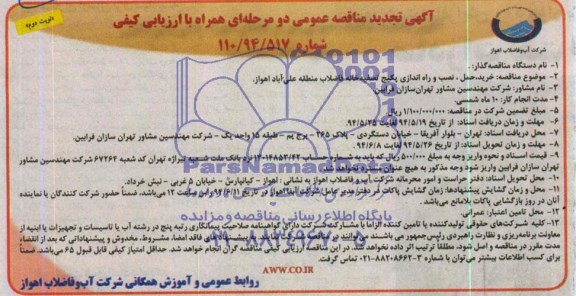 نوبت دوم
آگهی تجدید مناقصه عمومی دو مرحله‌ای همراه با ارزیابی کیفی
شماره ۱۱۰/۹۴/۵۱۷
شرکت آب‌وفاضلاب اهواز
۱- نام دستگاه مناقصه‌گذار:
۲- موضوع مناقصه: خرید، حمل، نصب و راه اندازی پکیج تصفیه‌خانه فاضلاب منطقه علی‌آباد اهواز.
۳- نام مشاور: شرکت مهندسین مشاور تهران‌سازان فرایین
۴- مدت انجام کار: ۱۰ ماه شمسی.
۵- مبلغ تضمین شرکت در مناقصه: ۱/۱۰۰/۰۰۰/۰۰۰ ریال
۶- مهلت و زمان دریافت اسناد: از تاریخ ۹۴/۵/۱۹ لغایت ۹۴/۵/۲۵
۷- محل دریافت اسناد: تهران - بلوار آفریقا - خیابان دستگردی - پلاک ۲۶۵ - برج بم - طبقه ۱۵ واحد یک - شرکت مهندسین مشاور تهران سازان فرایین.
۸- مهلت و زمان تحویل اسناد: از تاریخ ۹۴/۵/۲۶ لغایت ۹۴/۶/۸
۹- قیمت اسناد و نحوه واریز وجه به مبلغ ۵۰۰/۰۰۰ ریال که باید به شماره حساب نزد بانک ملت شعبه نیراژه تهران کد شعبه ۶۷۲۶۴ شرکت مهندسین مشاور
تهران سازان فرایین واریز شود وجه مذکور به هیچ عنوان مسترد نخواهد شد.
۱۰- محل تحویل اسناد: دبیرخانه حراست و امور محرمانه شرکت آب‌وفاضلاب اهواز به نشانی: اهواز - کیانپارس - خیابان ۵ غربی - نبش خرداد.
۱۱- محل و زمان گشایش پیشنهادها: زمان گشایش پاکات در دفتر مدیرعامل شرکت آبفا اهواز در تاریخ ۹۴/۶/۱۱ راس ساعت ۱۲ می‌باشد، ضمناً حضور شرکت کنندگان یا نماینده
آنان در روز بازگشایی پاکات بلامانع می‌باشد.
۱۲- محل تامین اعتبار: عمرانی
معاونت برنامه‌ریزی و نظارت راهبردی رئیس‌جمهور می‌باشند
مدت مقرر در مناقصه و اصل شود، مطلقا ترتیب اثر داده نخواهد شد. در این مناقصه ارزیابی کیفی مناقصه گران انجام خواهد شد. حداقل امتیاز کیفی قابل قبول ۶۵ می‌باشد ضمناً
برای کسب اطلاعات بیشتر می‌توان با شماره ۳-۸۸۲۰۸۶۶۲-۰۲۱ تماس حاصل نمود.
AWW.CO.IR
روابط عمومی و آموزش همگانی شرکت آب‌وفاضلاب اهواز
ParsNamadData
پایگاه اطلاع رسانی مناقصه و مزایده
۰۲۱-۸۸۳۴۹۶۷۰-۵